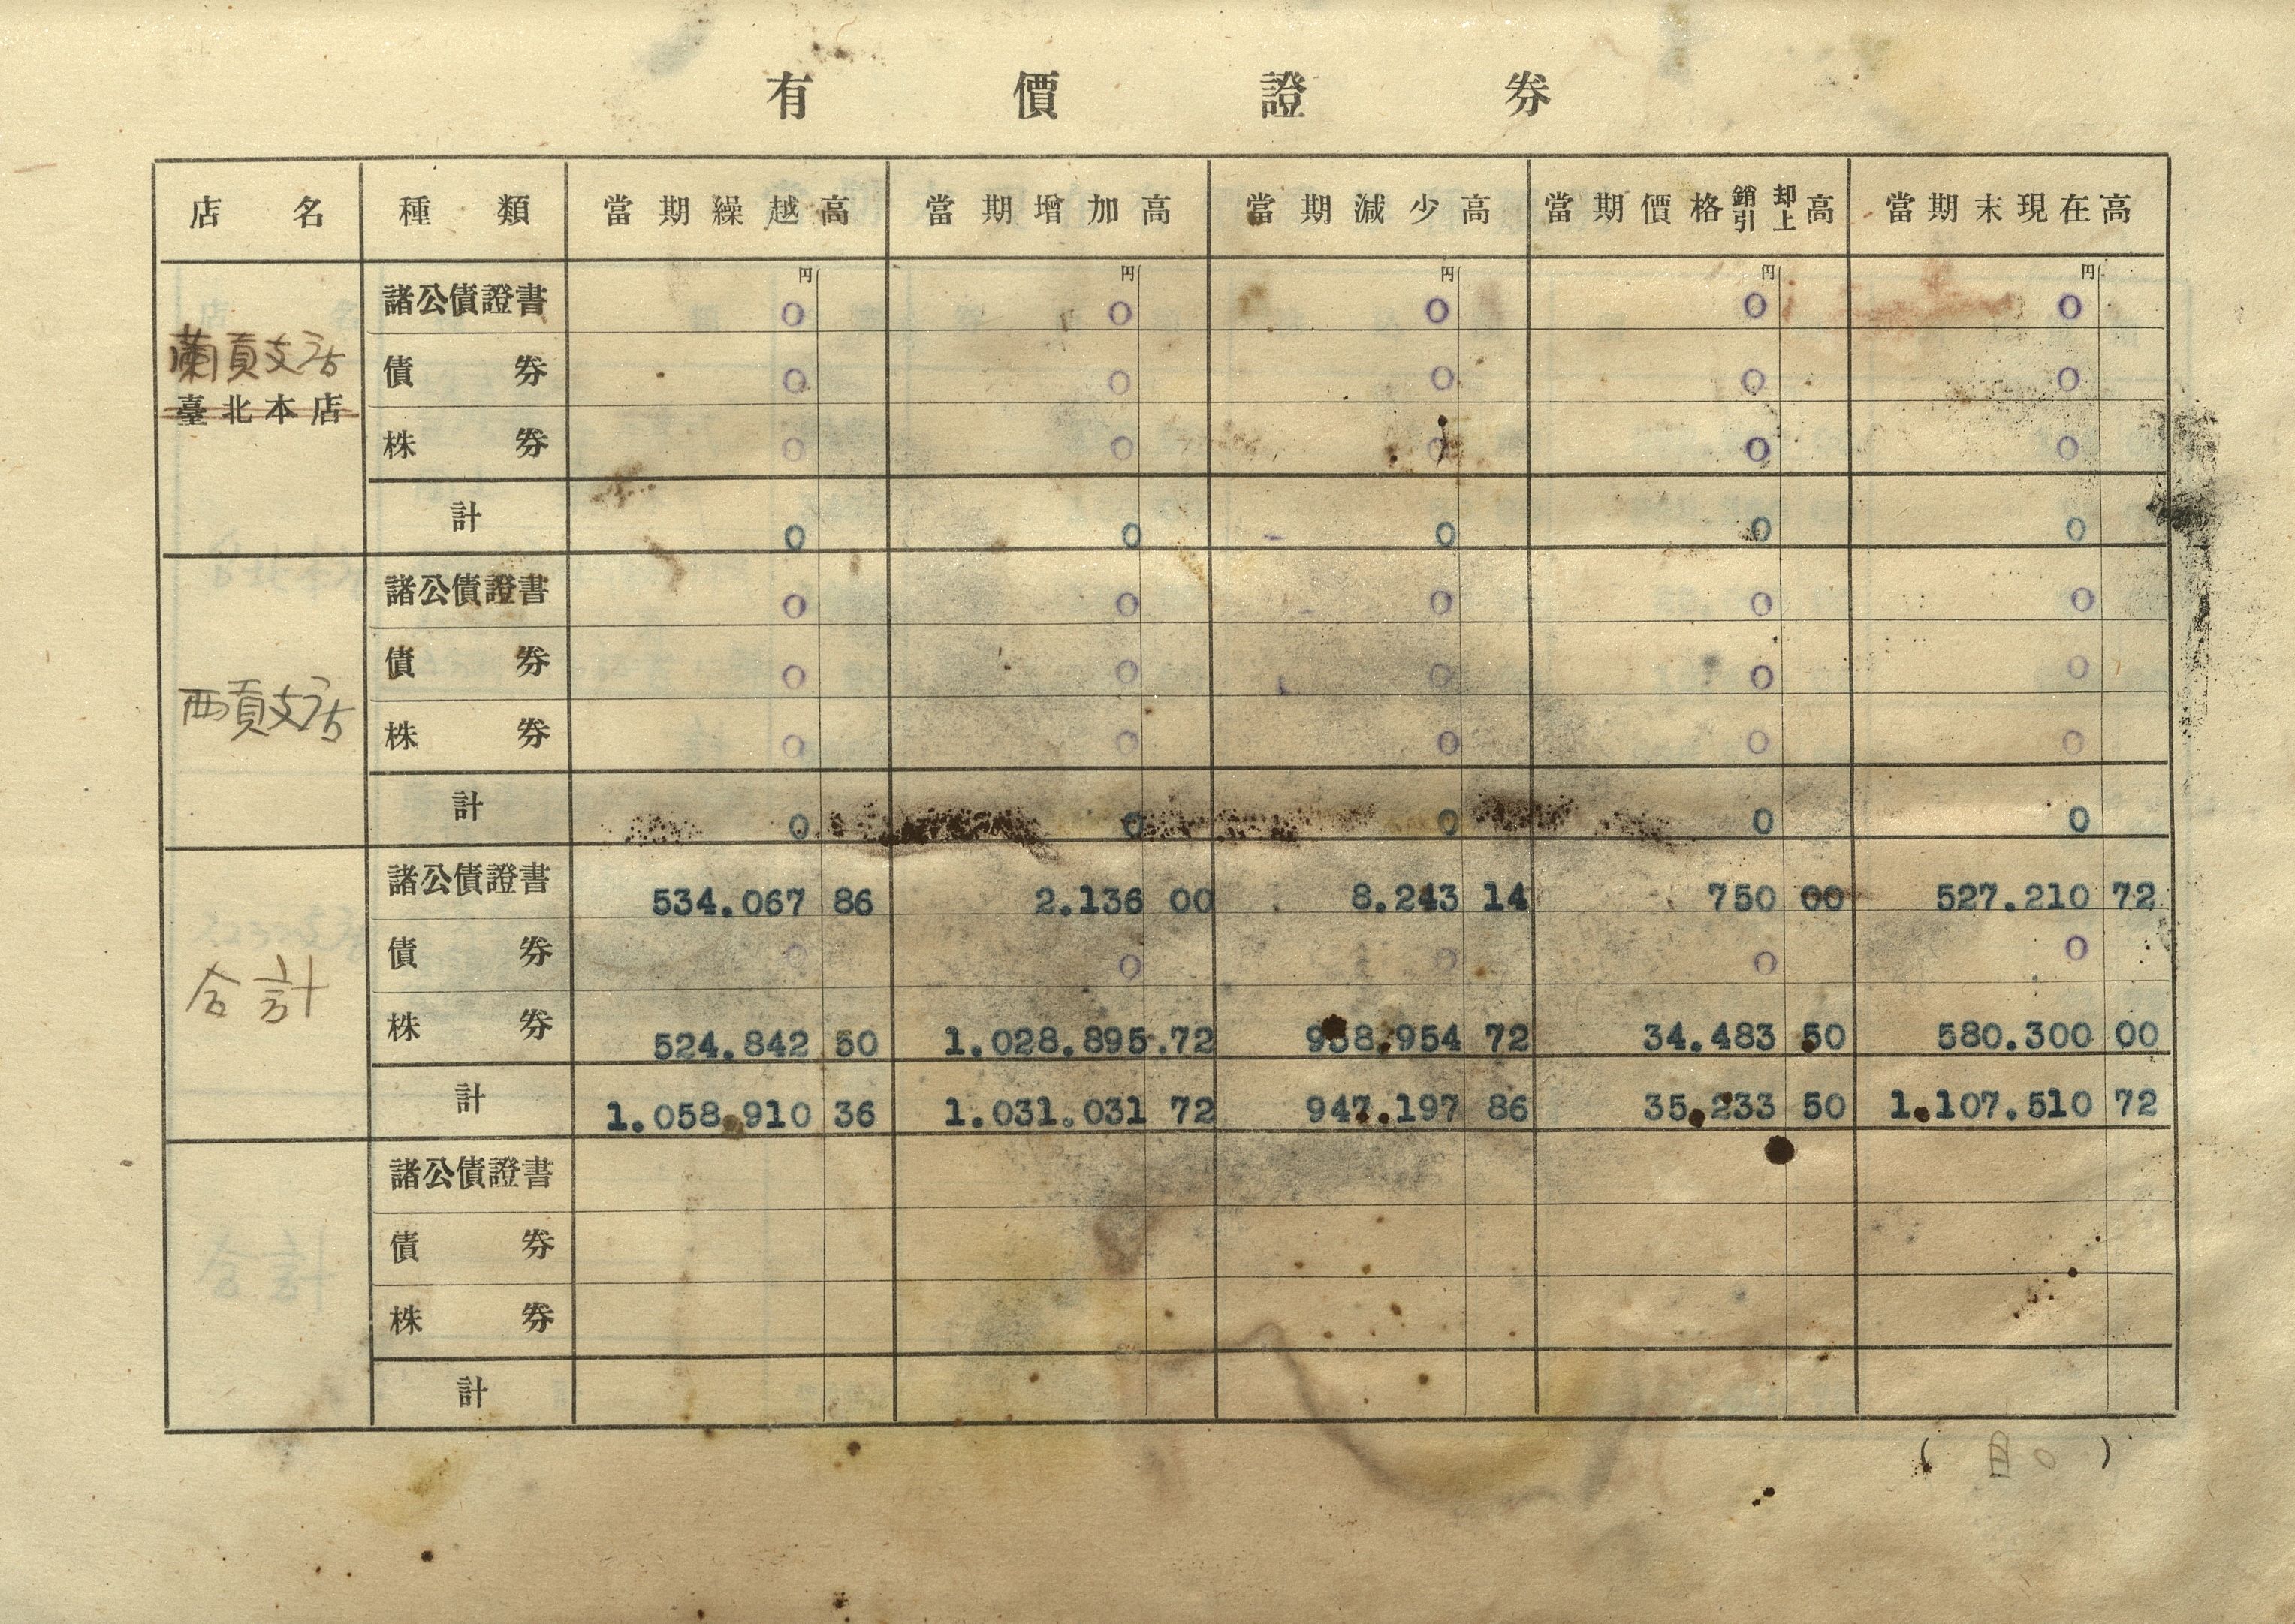 有價證券
店名 種類 當期繰越高 當期增加高 當期減少高 當期價格銷却引上高 當期末現在高
円 円 円 円 円
諸公債證書 0 0 0 0 0
蘭貢支店
債券 0 0 0 0 0
臺北本店
株券 0 0 0 0 0
計 0 0 0 0 0
諸公債證書 0 0 0 0 0
債券 0 0 0 0 0
西貢支店
株券 0 0 0 0 0
計 0 0 0 0 0
諸公債證書 534.067 86 2.136 00 8.243 14 750 00 527.210 72
債券 0 0 0 0 0
合計
株券 524.842 50 1.028.895.72 938.954 72 34.483 50 580.300 00
計 1.058.910 36 1.031.031 72 947.197 86 35.233 50 1.107.510 72
諸公債證書
債券
株券
計